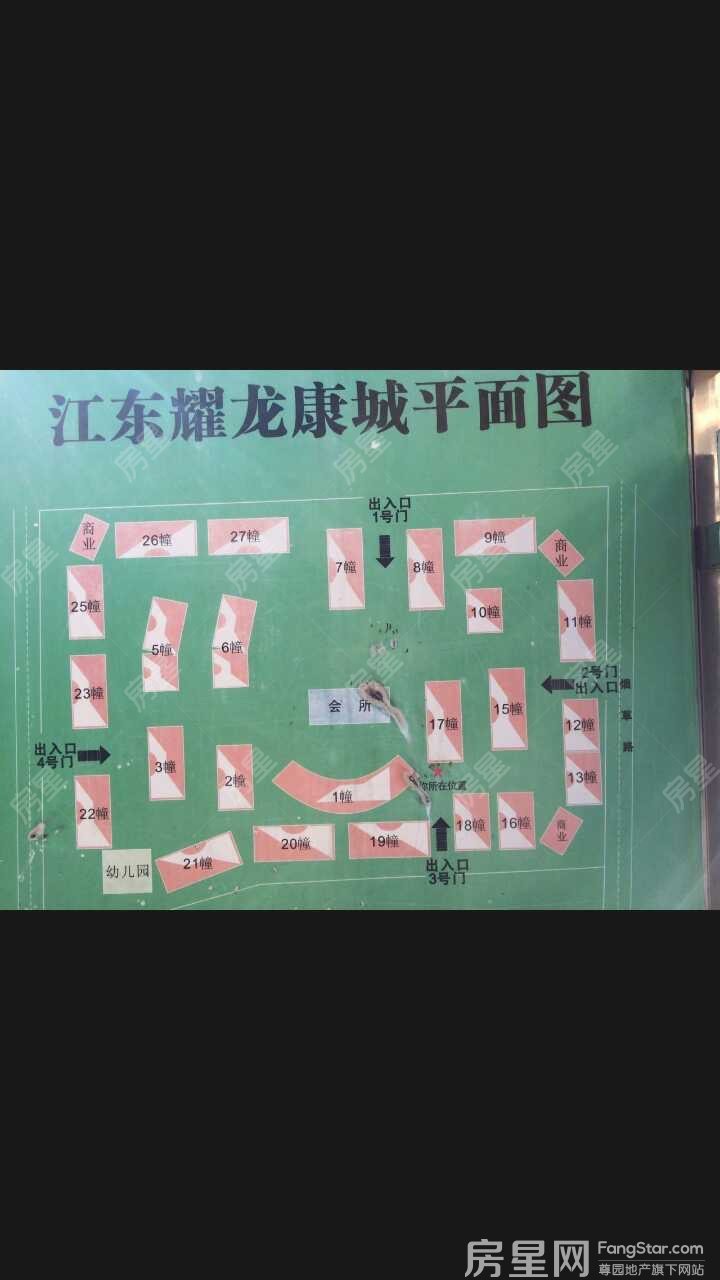 江东耀龙康城平面图
出入口
1号门
商业
26幢
27幢
7幢
8幢
9幢
商业
25幢
5幢
6幢
10幢
11幢
23幢
会所
17幢
15幢
2号门
出入口
烟草路
12幢
出入口
4号门
3幢
2幢
1幢
你所在位置
13幢
22幢
21幢
20幢
19幢
18幢
16幢
商业
幼儿园
出入口
3号门
房星
房星
房星
房星
房星
房星
房星
房星
房星
房星
房星
房星
房星网
FangStar.com
尊园地产旗下网站